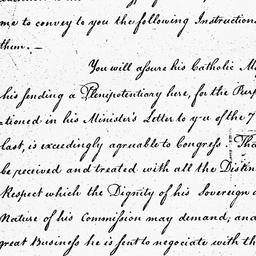 me to convey to you the following Instructions
them. —
You will assure his Catholic M
his sending a Plenipotentiary here, for the Purp
tioned in his Minister's Letter to y-u of the 7
last, is exceedingly agreeable to Congress. Tha
be received and treated with all the Distin
Respect which the Dignity of his Sovereign a
Nature of his Commission may demand, and
great Business he is sent to negociate with th